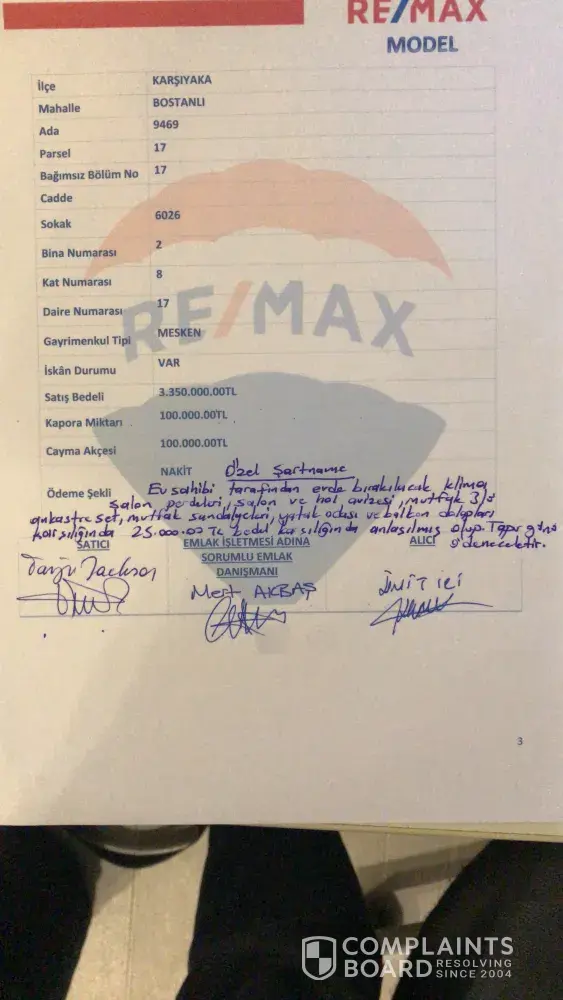 RE/MAX
MODEL
İlçe KARŞIYAKA
Mahalle BOSTANLI
Ada 9469
Parsel 17
Bağımsız Bölüm No 17
Cadde
Sokak 6026
Bina Numarası 2
Kat Numarası 8
Daire Numarası 17
Gayrimenkul Tipi MESKEN
İskân Durumu VAR
Satış Bedeli 3.350.000.00TL
Kapora Miktarı 100.000.00TL
Cayma Akçesi 100.000.00TL
Ödeme Şekli NAKİT
RE/MAX
Özel Şartname
Ev sahibi tarafından evde bırakılacak klima
salon perdeleri, salon ve hol avizesi, mutfak 3'lü
ankastre set, mutfak sandalyeleri, yatak odası ve balkon dolapları
karşılığında 25.000.00 TL bedel karşılığında anlaşılmış olup. Tapu günü
ödenecektir.
SATICI EMLAK İŞLETMESİ ADINA ALICI
SORUMLU EMLAK
DANIŞMANI
Jackson Mert AKBAŞ ÜMİT
3
COMPLAINTS
BOARD RESOLVING
SINCE 2004